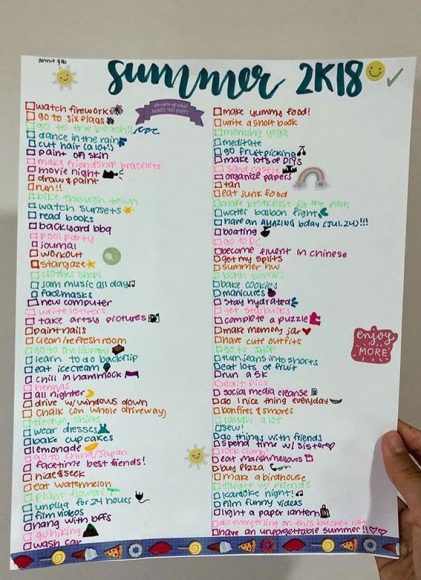 annie g
summer 2K18
do more of what
MAKES YOU HAPPY
watch fireworks
go to six flags
go to the beach!!
dance in the rain
cut hair (a lot!)
paint on skin
make friendship bracelets
movie night
draw & paint
run!!
bike through town
watch sunsets
read books
backyard bbq
pool party
journal
workout
stargaze
clothes shop!
jam music all day
facemasks
new computer
write letters
take artsy pictures
paint nails
clean/refresh room
go to the library
learn to do backflip
eat icecream
chill in hammock
hennas
all nighter
drive w/ windows down
chalk (on whole driveway)
tiedye shirts
wear dresses
bake cupcakes
lemonade
go to china/Japan
facetime best friends!
hide & seek
eat watermelon
plant flowers
unplug for 24 hours
film videos
hang with bffs
go hiking
wash car
make yummy food!
write a short book
morning yoga
meditate
go fruit picking
make lots of DIYs
sand castle
organize papers
tan
eat junk food
make breakfast for the fam
water balloon fight
have an AMAZING bday (Jul. 24)!!!
boating
go to DC
become fluent in Chinese
get my splits
summer hw
bath bombs
bake cookies
manicures
stay hydrated
get starbucks
complete a puzzle
make memory jar
have cute outfits
go to shop
turn jeans into shorts
eat lots of fruit
run a 5K
social media cleanse
do 1 nice thing everyday
bonfires & smores
laugh a lot
new!
go things with friends
spend time w/ sister
rock climb
eat marshmellows
buy plaza
make a birdhouse
target w/ friends
karaoke night!
film funny videos
light a paper lantern
do everything on this bucket list
have an unforgettable summer!!
enjoy
MORE